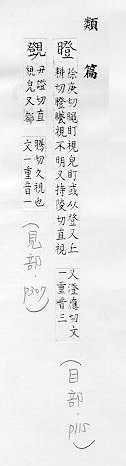 類篇
瞪
除庚切瞪盯視皃盯或从登又丘
耕切瞪矃視不明又持陵切直視
又澄應切文
一重音三
(目部·p115)
覴
丑證切直
視皃又都
騰切久視也
文一重音一
(見部·p307)